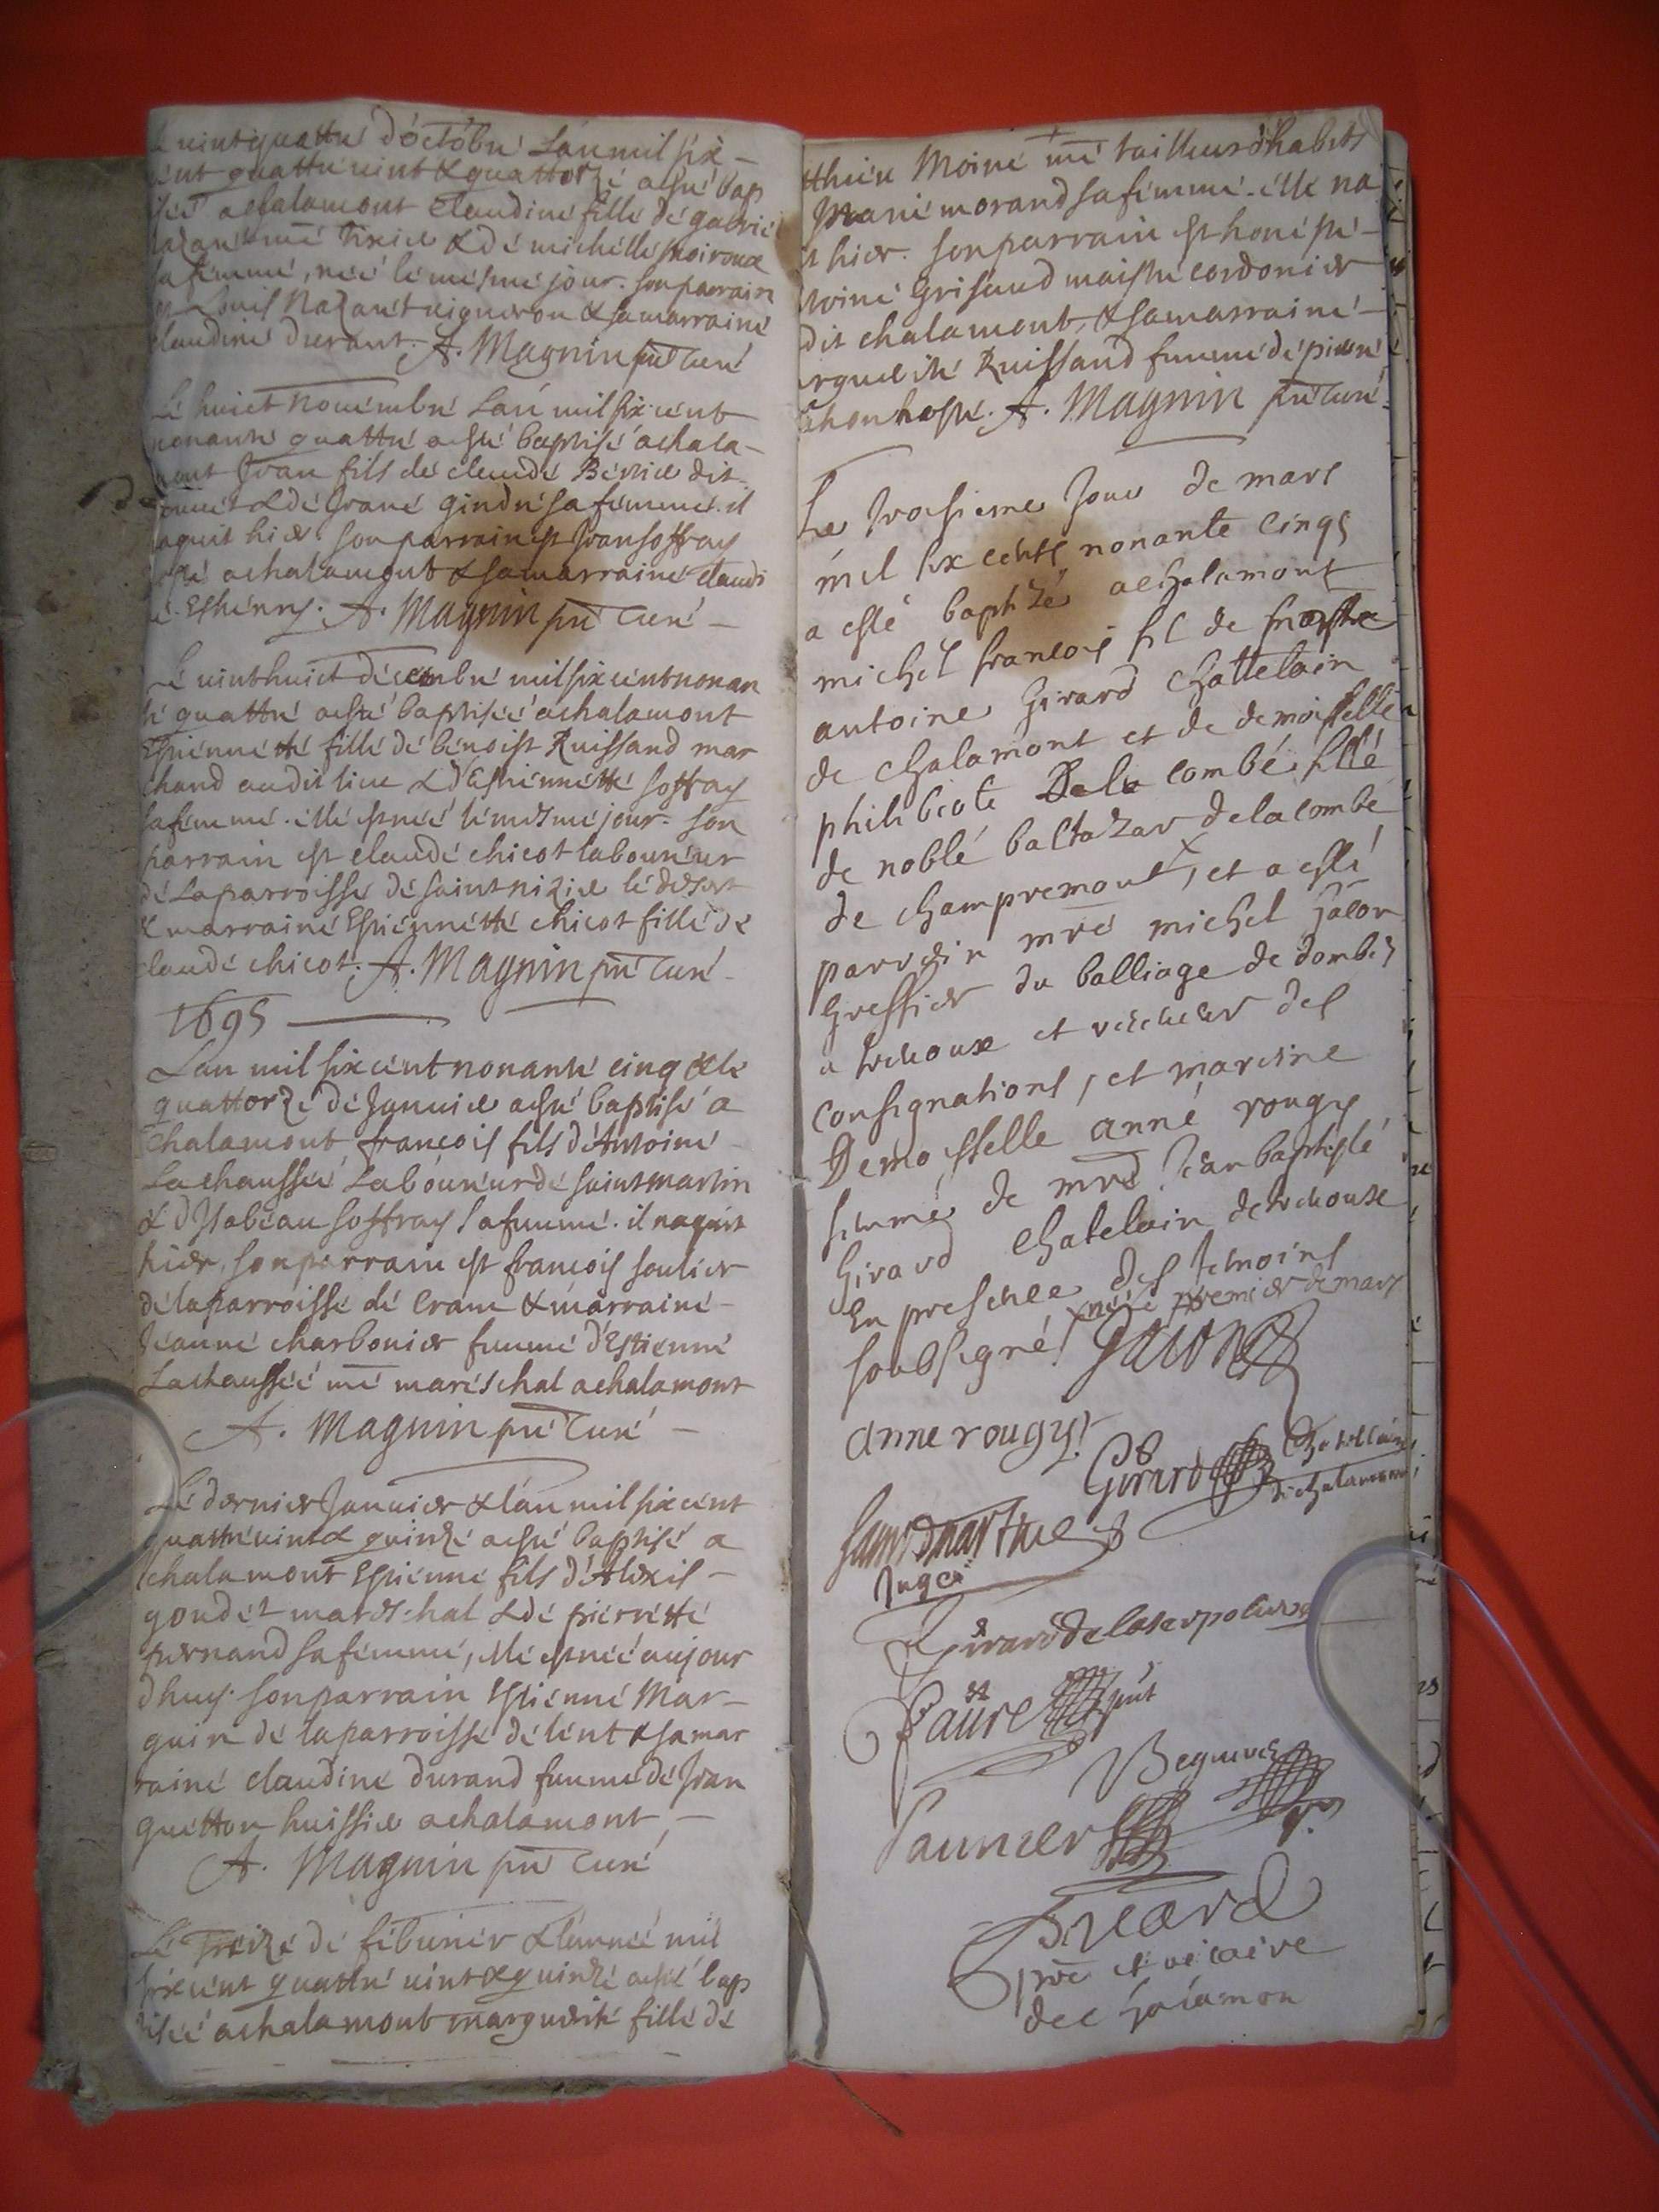 uintquattré d'octobré L'an mil six
cent quattré uint & quattorzé a esté bap
tiséé a chalamont Claudiné fillé dé gabriel
Nazaret mé tixier & dé michéllé poiroux
sa fémmé, néé lé mésmé jour. son parrain
est Louis Nazaret uigneron & sa marrainé
claudiné durant. A. Magnin pré Curé
Lé huict nouémbré L'an mil six cent
nonanté quattré a esté baptisé a chala-
mont Jean fils dé claudé Bérnier dit
& dé Jeané gindré sa fémmé. il
naquit hier son parrain est Jean soffray
a chalamont & sa marrainé claudi
né Esthénny. A. Magnin pré Curé
Lé uint huict décembré mil six cent nonan
té quattré a esté baptiséé a chalamont
Estiénnétté fillé dé bénoist Ruissand mar
chand audit lieu & d'Estiénnétté soffray
sa fémmé. éllé est néé lé mésmé jour. son
parrain est claudé chicot labouréur
dé la parroissé dé saint nizier lé désert
& marrainé Estiénnétté chicot fillé dé
claudé chicot. A. Magnin pré Curé
1695
L'an mil six cent nonanté cinq & lé
quattorzé dé Januier a esté baptisé a
chalamont, françois fils d'Antoiné
Lachausséé Labouréur dé saint martin
& d'Isabeau soffray sa fémmé. il naquit
hier, son parrain est françois soulier
dé la parroissé dé Crane & marrainé
Jéanné charbonier fémmé d'Estienné
Lachausséé mé maréschal a chalamont
A. Magnin pré Curé
Lé dernier Januier & l'an mil six cent
quattré uint & quinzé a esté baptisé a
chalamont Estienné fils d'Alexis
goudét mareschal & dé piérrétté
pernand sa fémmé, éllé est néé aujour
dhuy. son parrain Estienné Mar-
guin dé la parroissé dé lént & sa mar
rainé claudiné durand fémmé dé Jean
quétton huissier a chalamont
A. Magnin pré Curé
Lé treizé dé féburiér & l'annéé mil
six cent quattré uint & quinzé a esté bap
tiséé a chalamont margueritté fillé dé
tthieu Moiné mé tailleur d'habits
& Marié morand sa fémmé. éllé na
quit hier. son parrain est honésté
toiné Grisaud maistré cordonier
dit chalamont, & sa marrainé
argueritté Ruissand fémmé dé piérré
hosté. A. Magnin pré Curé
Le troisieme Jour de mars
mil six cents nonante cinqs
a esté baptizé a chalamont
michel francois fil de maistre
antoine Girard chattelain
de chalamont et de demoiselle
philiberte De la combé fillé
de noblé baltazar de la combe
de champremont, et a esté
parrein mre michel Jalon
Greffier du balliage de dombes
a treuoux et receueur des
consignations, et mareine
Demoisselle anné rougy
femmé de mre Jean baptisté
Girard chatelain de treuoux
En presence des temoins
soubsigné / x né le premier de mars
anne rougy
Girard chattellain
de chalamont
saint martin
Juge
Girard de la serpoliere
faure pnt
Beguin
Paunier
Bricard
pre et vicaire
de chalamon